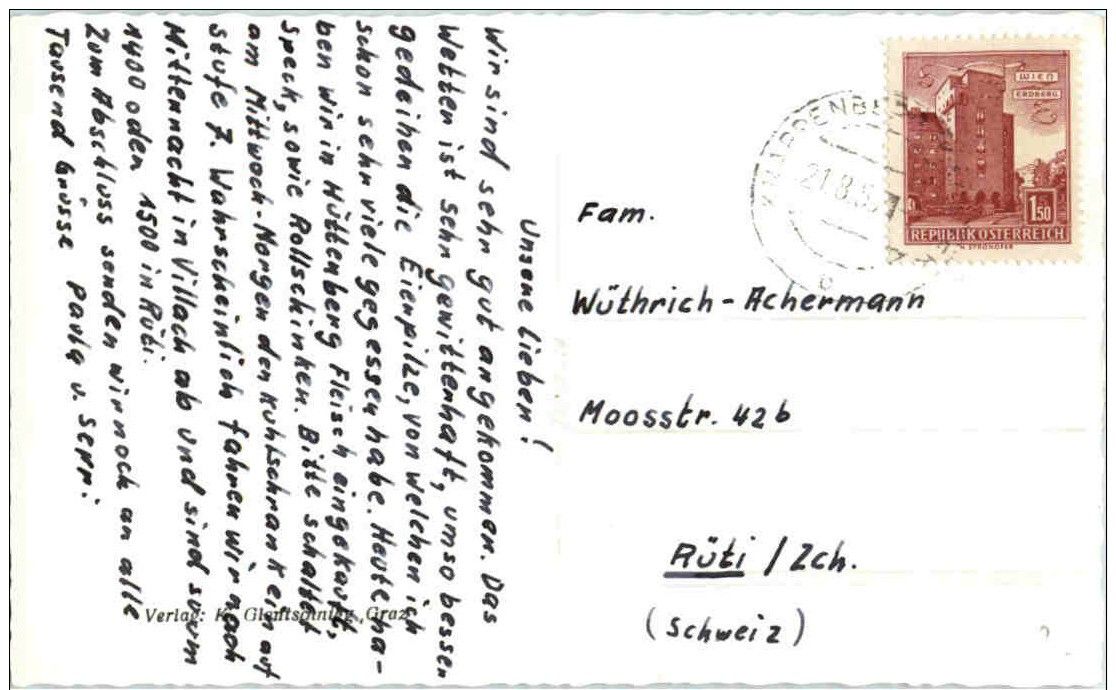 Unsere Lieben!
Wir sind sehr gut angekommen. Das
Wetter ist sehr gewitterhaft, umso besser
gedeihen die Eierpilze, von welchen ich
schon sehr viele gegessen habe. Heute ha-
ben wir in Hüttenberg Fleisch eingekauft,
Speck, sowie Rollschinken. Bitte schaltet
am Mittwoch-Morgen den Kühlschrank ein auf
Stufe 7. Wahrscheinlich fahren wir nach
Mitternacht in Villach ab und sind so um
1400 oder 1500 in Rüti.
Zum Abschluss senden wir noch an alle
Tausend Grüsse Paula u. Serri
Verlag: Graz
KNAPPENBERG
21.8.5
WIEN
ERDBERG
1.50
REPUBLIK ÖSTERREICH
Fam.
Wüthrich-Achermann
Moosstr. 42b
Rüti / Zch.
(Schweiz)